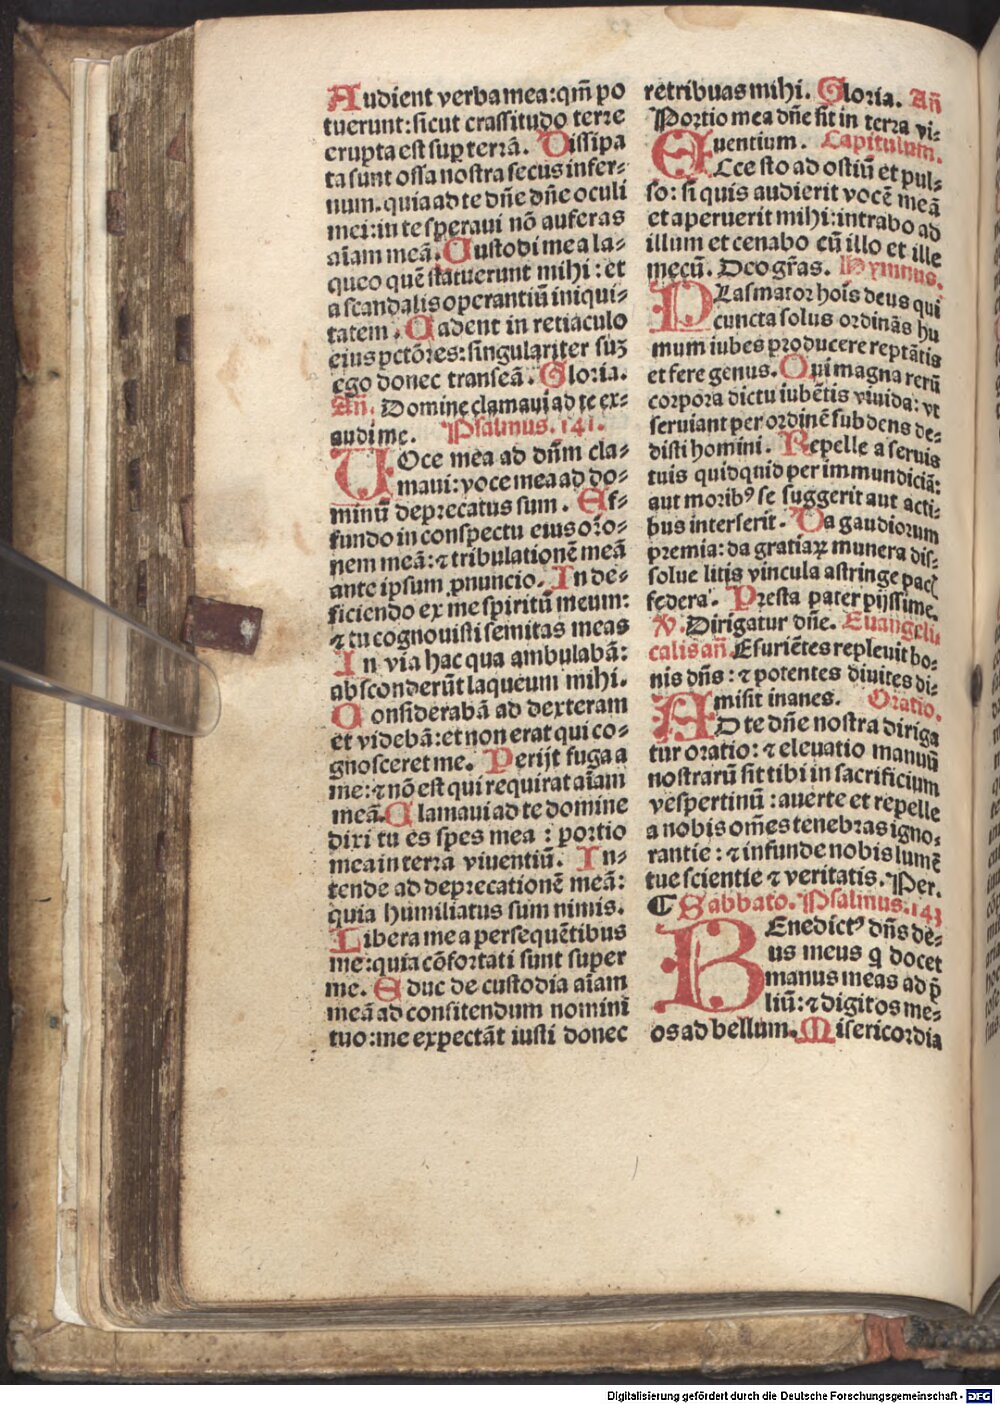 Audient verba mea:qm̄ po
tuerunt:sicut crassitudo terre
erupta est sup̱ terrā. Dissipa
ta sunt ossa nostra secus infer⸗
num. quia ad te dn̄e dn̄e oculi
mei:in te speraui nō auferas
aīam meā. Custodi me a la⸗
queo quē statuerunt mihi:et
a scandalis operantiū iniqui⸗
tatem. Cadent in retiaculo
eius pctōres:singulariter suꝫ
ego donec transeā. Gloria.
An̄. Domine clamaui ad te ex⸗
audi me. Psalmus. 141.
UOce mea ad dn̄m cla⸗
maui:voce mea ad do⸗
minū deprecatus sum. Ef⸗
fundo in conspectu eius orō⸗
nem meā:⁊ tribulationē meā
ante ipsum ꝓnuncio. In de⸗
ficiendo ex me spiritū meum:
⁊ tu cognouisti semitas meas
In via hac qua ambulabā:
absconderūt laqueum mihi.
Considerabā ad dexteram
et videbā:et non erat qui co⸗
gnosceret me. Perijt fuga a
me:⁊ nō est qui requirat aīam
meā. Clamaui ad te domine
dixi tu es spes mea : portio
mea in terra viuentiū. In⸗
tende ad deprecationē meā:
quia humiliatus sum nimis.
Libera me a persequētibus
me:quia cōfortati sunt super
me. Educ de custodia aīam
meā ad confitendum nomini
tuo:me expectāt iusti donec
retribuas mihi. Gloria. An̄
Portio mea dn̄e sit in terra vi⸗
uentium. Capitulum.
ECce sto ad ostiū et pul⸗
so: si quis audierit vocē meā
et aperuerit mihi:intrabo ad
illum et cenabo cū illo et ille
mecū. Deo gr̄as. Hymnus.
PLasmator hoīs deus qui
cuncta solus ordinās hu
mum iubes producere reptātis
et fere genus. Qui magna rerū
corpora dictu iubētis viuida: vt
seruiant per ordinē subdens de⸗
disti homini. Repelle a seruis
tuis quidquid per immundiciā:
aut moribꝰ se suggerit aut acti⸗
bus interserit. Da gaudiorum
premia: da gratiaꝝ munera dis⸗
solue litis vincula astringe pacꝭ
federa. Presta pater pijssime.
℣. Dirigatur dn̄e. Euangeli
calis an̄. Esuriētes repleuit bo⸗
nis dn̄s : ⁊ potentes diuites di⸗
misit inanes. Oratio.
AD te dn̄e nostra diriga
tur oratio: ⁊ eleuatio manuū
nostrarū sit tibi in sacrificium
vespertinū : auerte et repelle
a nobis om̄es tenebras igno⸗
rantie : ⁊ infunde nobis lumē
tue scientie ⁊ veritatis. Per.
¶ Sabbato. Psalmus. 143
BEnedictꝰ dn̄s de⸗
us meus q̄ docet
manus meas ad p̄
liū: ⁊ digitos me⸗
os ad bellum. Misericordia
Digitalisierung gefördert durch die Deutsche Forschungsgemeinschaft - DFG